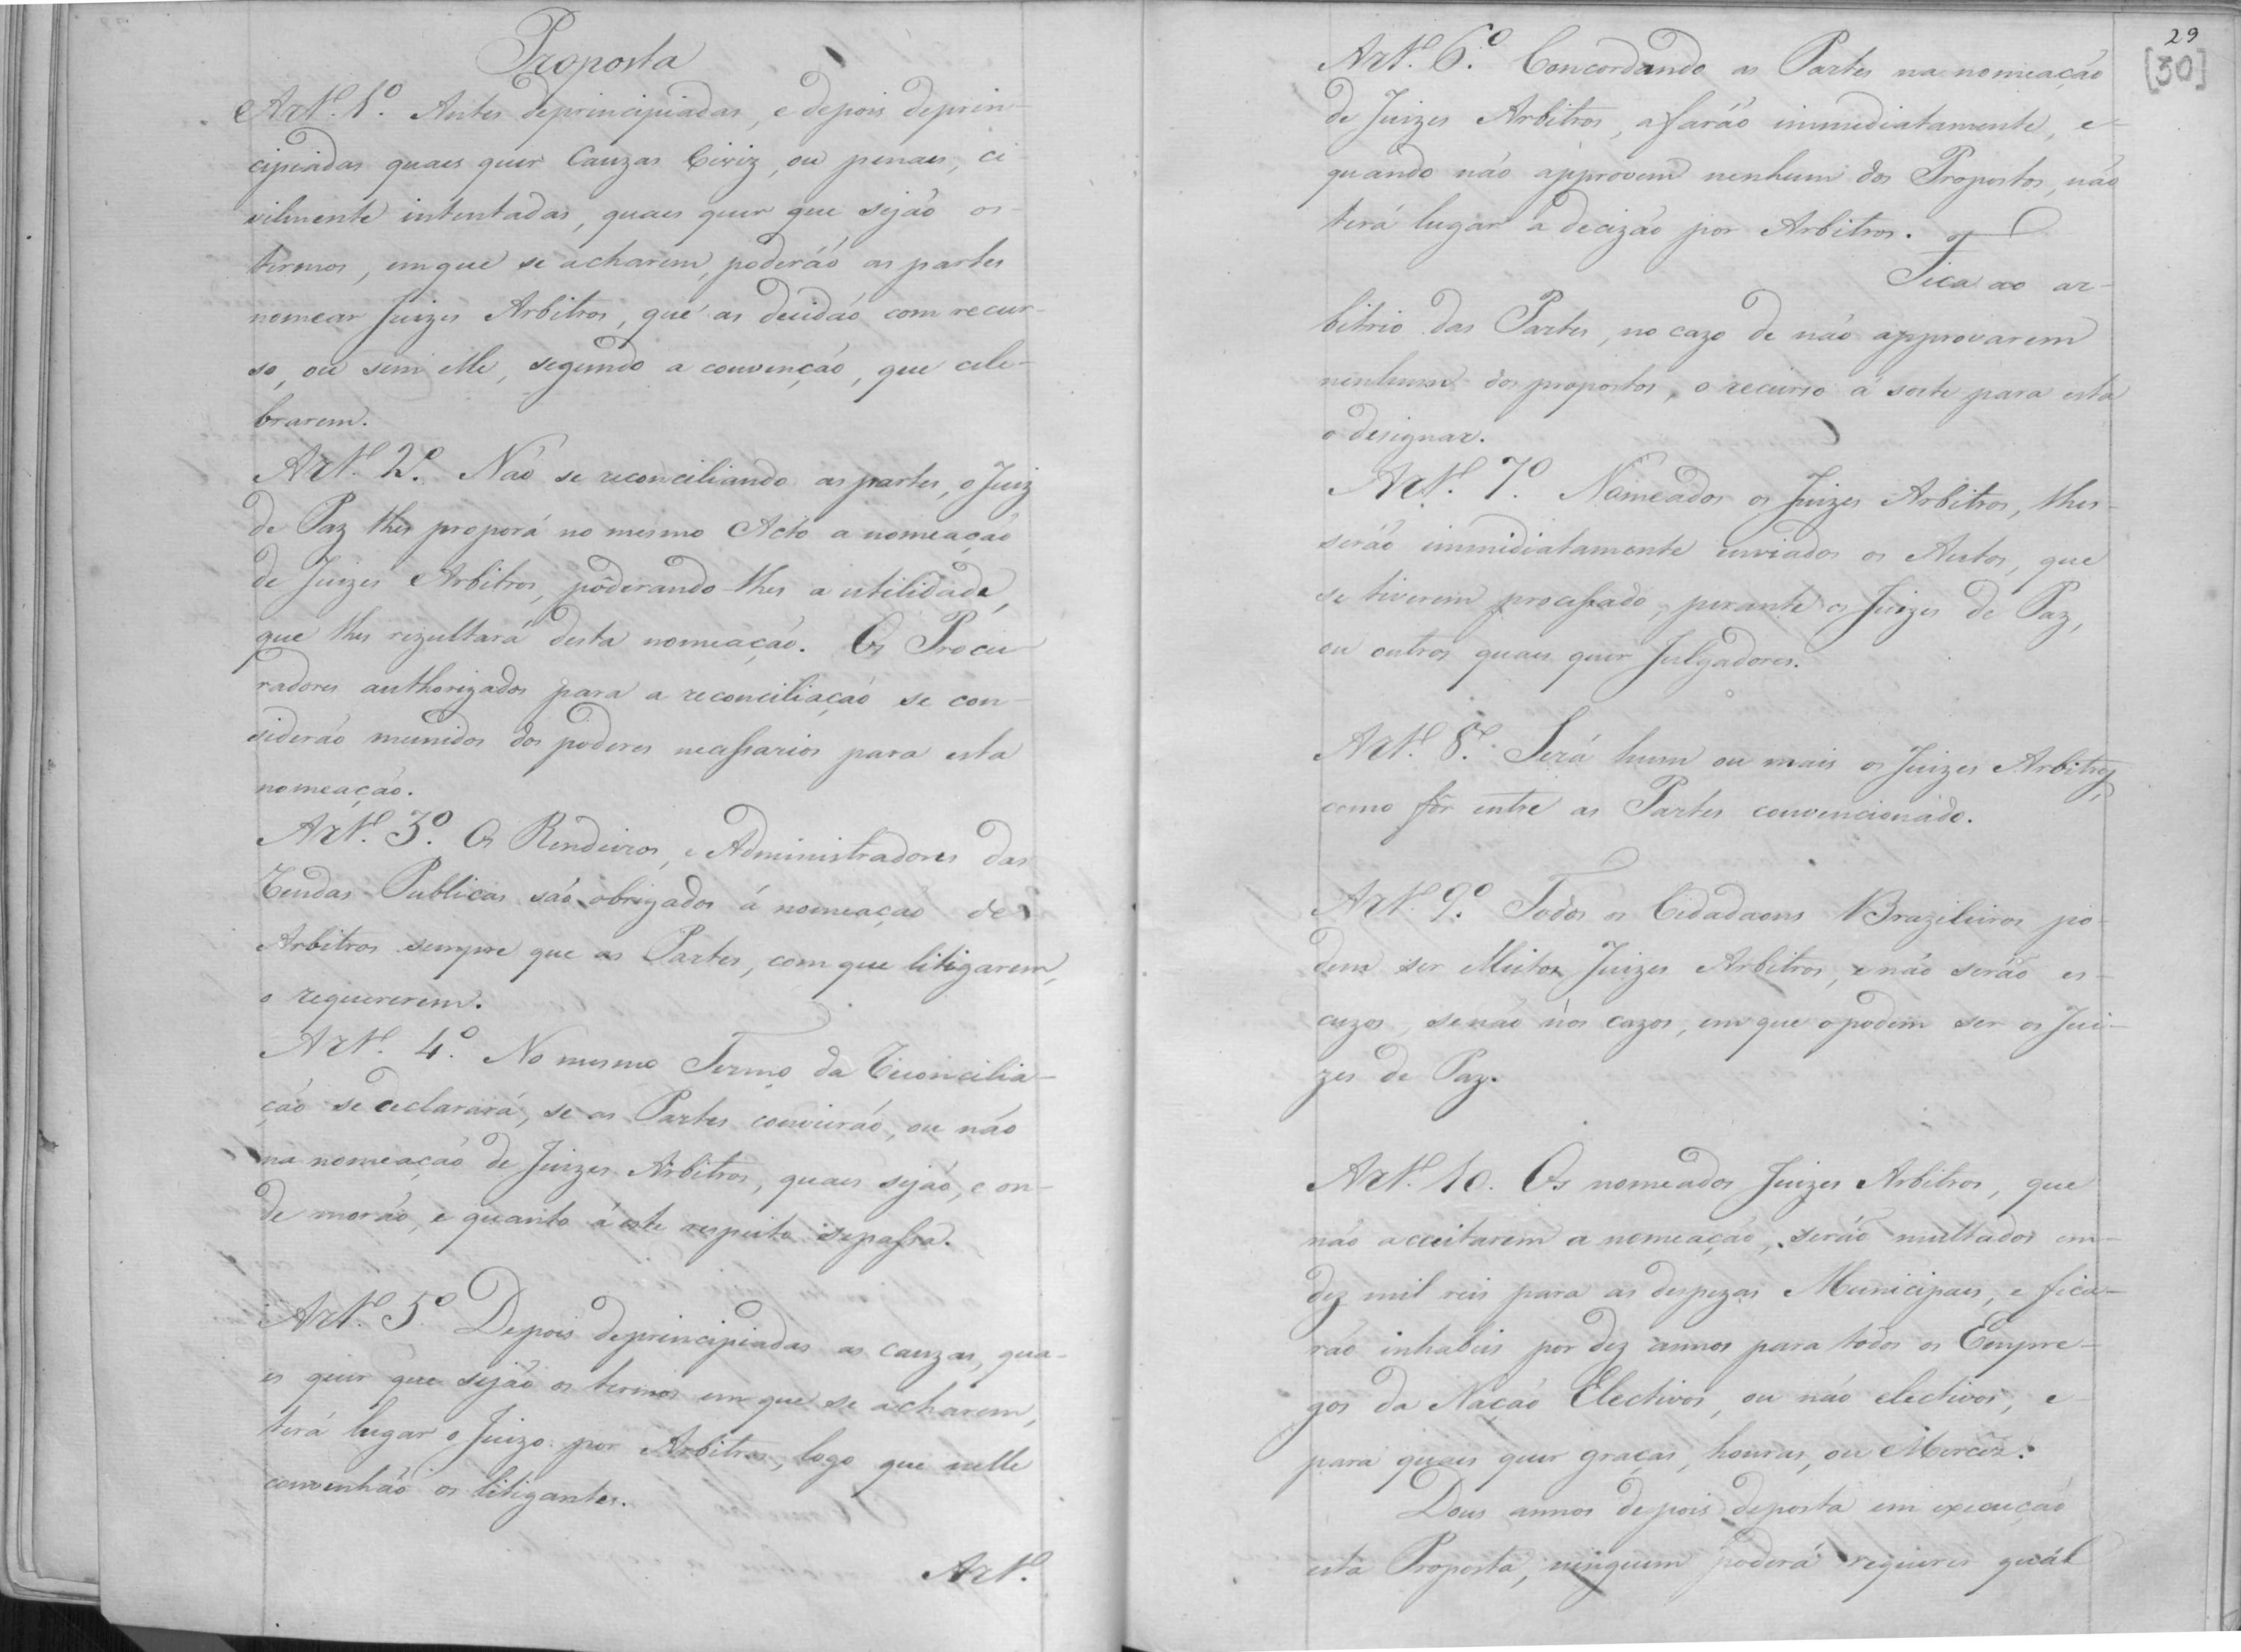 Proposta
Art.º 1.º Antes deprincipiadas, e depois deprin-
cipiadas quaes quer Cauzas Civiz, ou penaes, ci
vilmente intentadas, quaes quer que sejão os
termos, emque se acharem, poderáõ as partes
nomear Juizes Arbitros, que as decidão com recur-
so, ou sem elle, segundo a convenção, que cele-
brarem.
Art.º 2.º Não se reconciliando as partes, o Juiz
de Paz lhes proporá no mesmo Acto a nomeação
de Juizes Arbitros, pôderando-lhes a utilidade,
que lhes rezultará desta nomeação. Os Procu
radores authorizados para a reconciliação se con-
siderão munidos dos poderes necessarios para esta
nomeação.
Art.º 3.º Os Rendeiros, e Administradores das
Rendas Publicas são obrigados á nomeação de
Arbitros sempre que as Partes, com que litigarem,
o requererem.
Art.º 4.º No mesmo Termo da Reconcilia-
ção se declarará, se as Partes convierão, ou não
na nomeação de Juizes Arbitros, quaes sejão, e on-
de morão, e quanto á este respeito sepassa.
Art.º 5.º Depois deprincipiadas as cauzas, qua-
es quer que sejão os termos em que se acharem,
terá lugar o Juizo por Arbitros, logo que nelle
convenhão os litigantes.
Art.º
29
[30]
Art.º 6.º Concordando as Partes na nomeação
de Juizes Arbitros, afarão immediatamente, e
quando não approvem nenhum dos Propostos, não
terá lugar a decizão por Arbitros.
Fica ao ar-
bitrio das Partes, no cazo de não approvarem
nenhum dos propostos, o recurso á sorte para esta
o designar.
Art.º 7.º Nomeados os Juizes Arbitros, lhes
serão immidiatamente enviados os Autos, que
se tiverem processado, perante os Juizes de Paz,
ou outros quaes quer Julgadores.
Art.º 8.º Será hum ou mais os Juizes Arbitros,
como fôr entre as Partes convencionado.
Art.º 9.º Todos os Cidadaons Brazileiros po-
dem ser Eleitos Juizes Arbitros, e não serão es-
cuzos, senão nos cazos, em que opodem ser os Jui-
zes de Paz.
Art.º 10. Os nomeados Juizes Arbitros, que
não acceitarem a nomeação, serão multados em
dez mil reis para as despezas Municipaes, e fica-
rão inhabeis por dez annos para todos os Empre-
gos da Nação Electivos, ou não electivos, e
para quaes quer graças, honras, ou Mercêz.
Dous annos depois deposta em execução
esta Proposta, ninguem poderá requerer quál